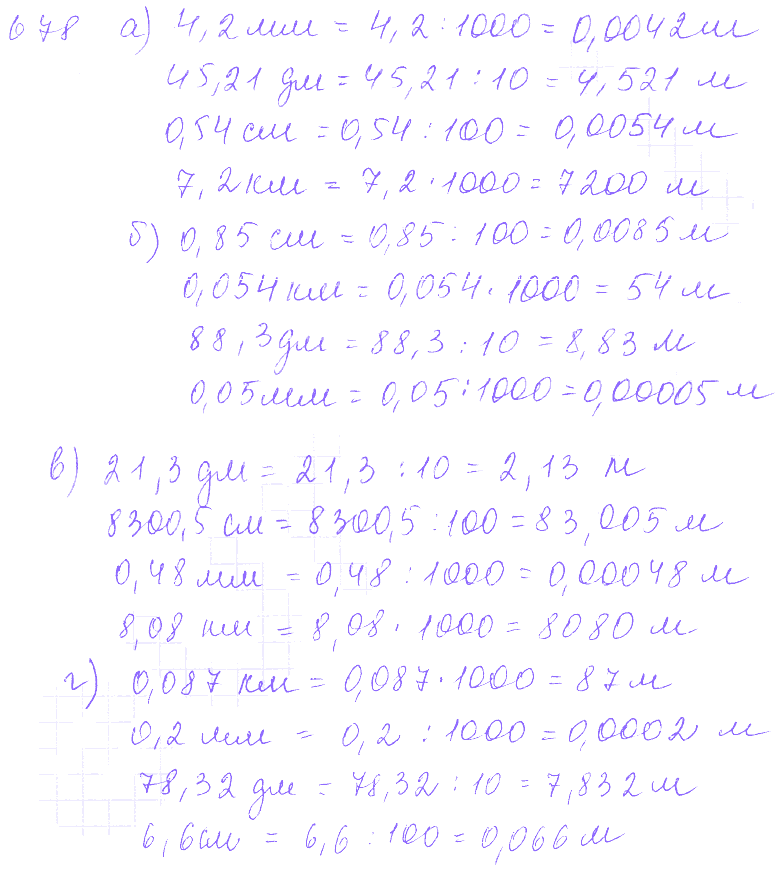 678 а) 4,2 мм = 4,2 : 1000 = 0,0042 м
45,21 дм = 45,21 : 10 = 4,521 м
0,54 см = 0,54 : 100 = 0,0054 м
7,2 км = 7,2 · 1000 = 7200 м
б) 0,85 см = 0,85 : 100 = 0,0085 м
0,054 км = 0,054 · 1000 = 54 м
88,3 дм = 88,3 : 10 = 8,83 м
0,05 мм = 0,05 : 1000 = 0,00005 м
в) 21,3 дм = 21,3 : 10 = 2,13 м
8300,5 см = 8300,5 : 100 = 83,005 м
0,48 мм = 0,48 : 1000 = 0,00048 м
8,08 км = 8,08 · 1000 = 8080 м
г) 0,087 км = 0,087 · 1000 = 87 м
0,2 мм = 0,2 : 1000 = 0,0002 м
78,32 дм = 78,32 : 10 = 7,832 м
6,6 см = 6,6 : 100 = 0,066 м